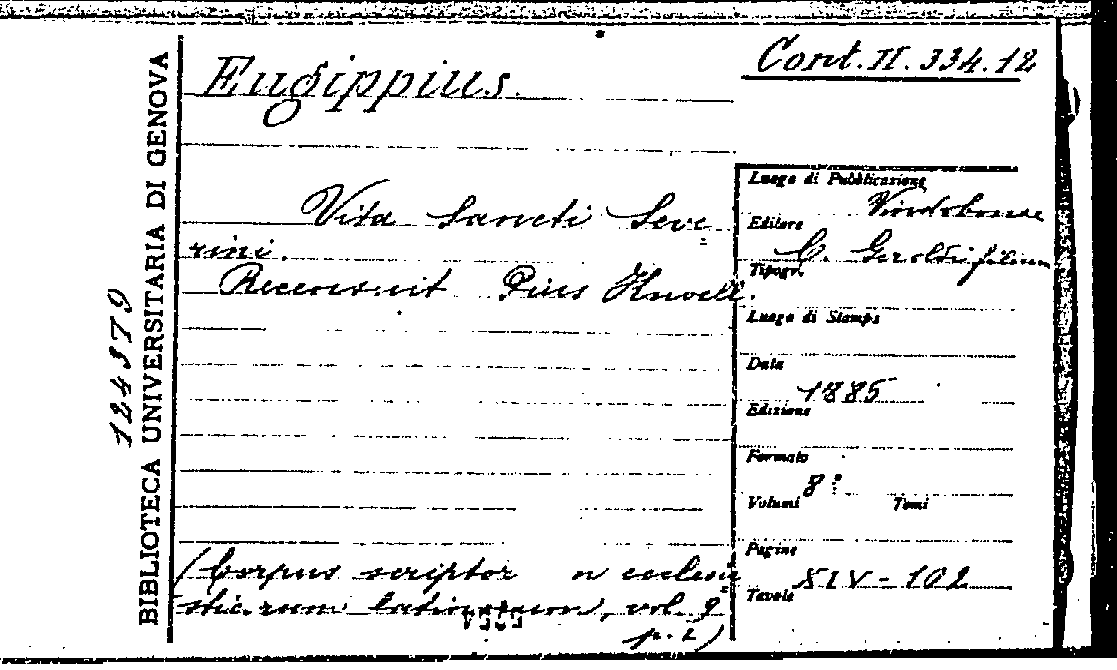 Cont. II. 334. 12
Eugippius.
Vita Sancti Seve
rini.
Recensuit Pius Knoell.
Luogo di Pubblicazione
Vindobonae
Editore
C. Geroldi filium
Tipogr.
Luogo di Stampa
Data
1885
Edizione
Formato
8º
Volumi Tomi
Pagine
XIV - 102
Tavole
(Corpus scriptor n ecclesia
sticarum latinorum, vol. 9
p. 2)
BIBLIOTECA UNIVERSITARIA DI GENOVA
124379